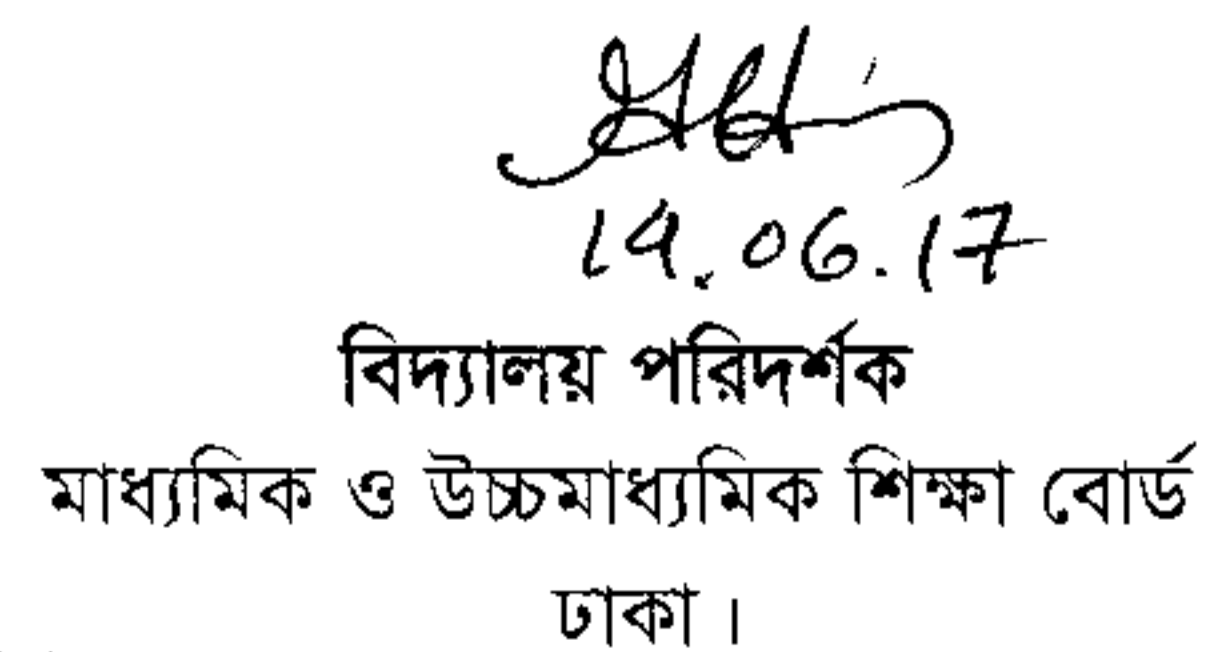 14.06.17
বিদ্যালয় পরিদর্শক
মাধ্যমিক ও উচ্চমাধ্যমিক শিক্ষা বোর্ড
ঢাকা।